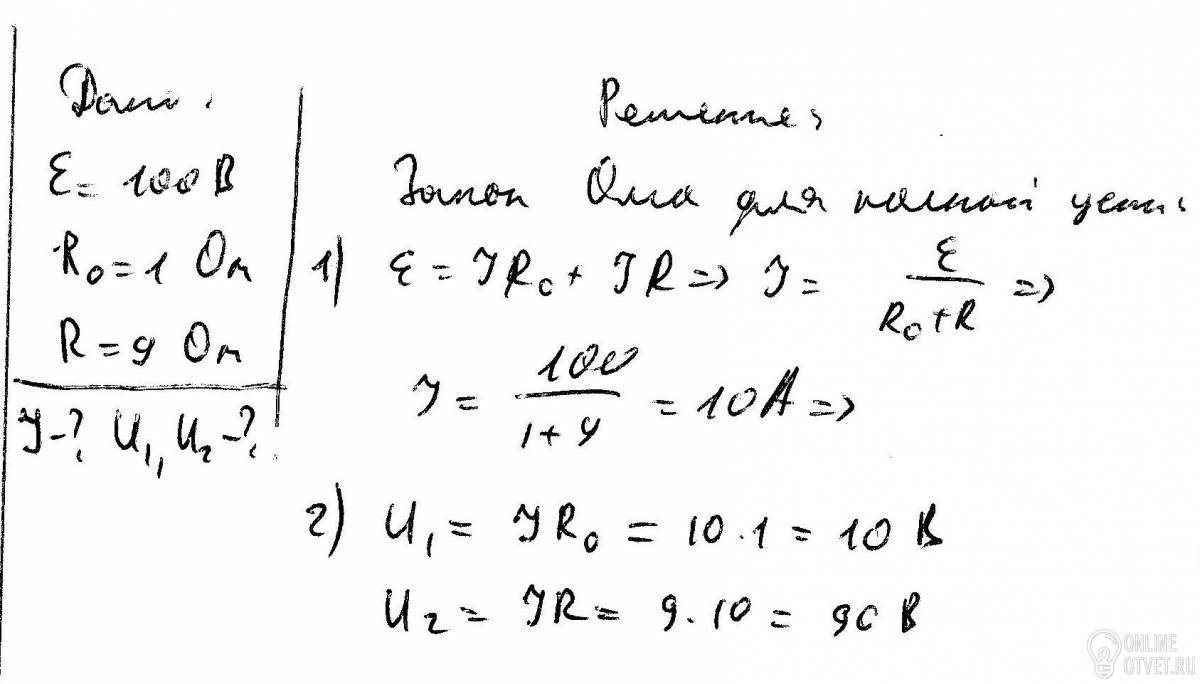 Дано:
Ɛ = 100 В
R₀ = 1 Ом
R = 9 Ом
I-? U₁, U₂-?
Решение:
Закон Ома для полной цепи:
1) Ɛ = IR₀ + IR => I = Ɛ / (R₀ + R) =>
I = 100 / (1 + 9) = 10 А =>
2) U₁ = IR₀ = 10 · 1 = 10 В
U₂ = IR = 9 · 10 = 90 В
ONLINE
OTVET.RU